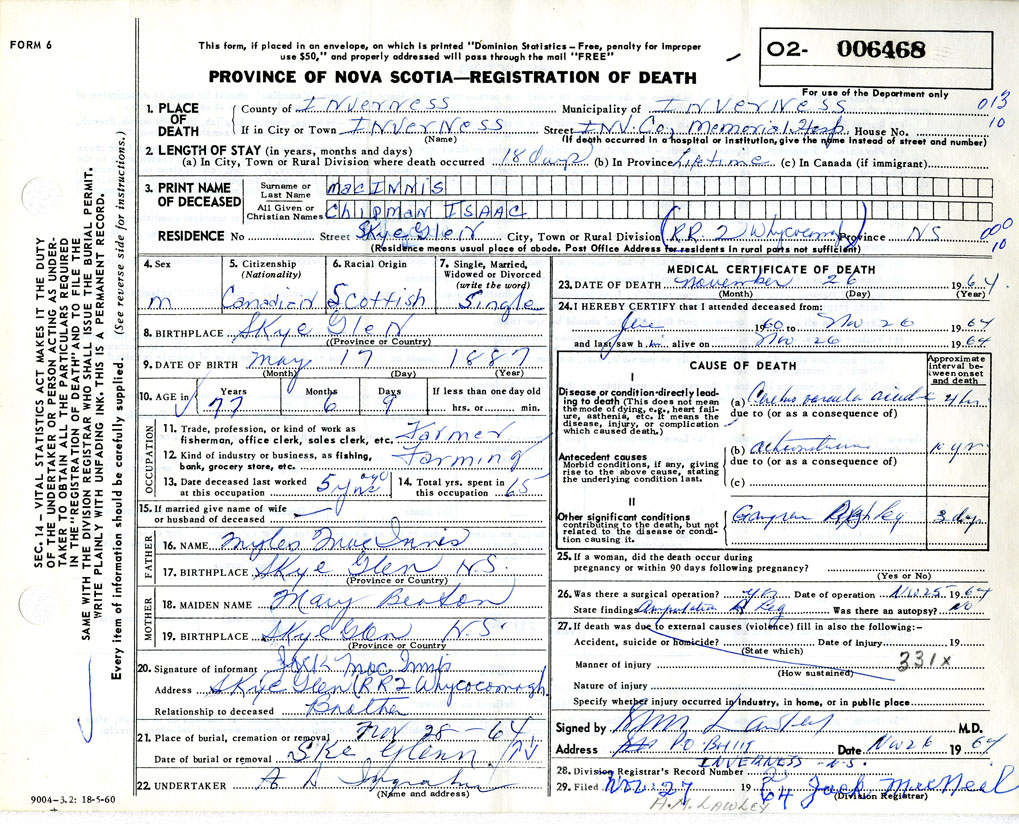 FORM 6
This form, if placed in an envelope, on which is printed "Dominion Statistics – Free, penalty for improper
use $50," and properly addressed will pass through the mail "FREE"
O2- 006468
PROVINCE OF NOVA SCOTIA—REGISTRATION OF DEATH
For use of the Department only
013
10
1. PLACE OF DEATH
County of INVERNESS Municipality of INVERNESS
If in City or Town INVERNESS Street INV. Co. Memorial Hosp. House No.
(Name) (If death occurred in a hospital or institution, give the name instead of street and number)
2. LENGTH OF STAY (in years, months and days)
(a) In City, Town or Rural Division where death occurred 18 days (b) In Province Lifetime (c) In Canada (if immigrant)
3. PRINT NAME OF DECEASED
Surname or Last Name MacINNIS
All Given or Christian Names Chipman ISAAC
RESIDENCE No Street Skye Glen City, Town or Rural Division (RR. 2 Whycocomagh) Province NS
000
10
(Residence means usual place of abode. Post Office Address for residents in rural parts not sufficient)
4. Sex
m
5. Citizenship
(Nationality)
Canadian
6. Racial Origin
Scottish
7. Single, Married,
Widowed or Divorced
(write the word)
Single
8. BIRTHPLACE Skye Glen
(Province or Country)
9. DATE OF BIRTH May 17 1887
(Month) (Day) (Year)
10. AGE in
Years Months Days If less than one day old
77 6 9 hrs. or min.
OCCUPATION
11. Trade, profession, or kind of work as
fisherman, office clerk, sales clerk, etc. Farmer
12. Kind of industry or business, as fishing,
bank, grocery store, etc. Farming
13. Date deceased last worked
at this occupation 5 yrs ago
14. Total yrs. spent in
this occupation 65
15. If married give name of wife
or husband of deceased
FATHER
16. NAME Myles MacInnis
17. BIRTHPLACE Skye Glen N.S.
(Province or Country)
MOTHER
18. MAIDEN NAME Mary Beaton
19. BIRTHPLACE Skye Glen N.S.
(Province or Country
20. Signature of informant Jack MacInnis
Address Skye Glen (RR2 Whycocomagh
Relationship to deceased Brother
21. Place of burial, cremation or removal Nov 28-64
Date of burial or removal Ske Glenn
22. UNDERTAKER A D Ingraham
(Name and address)
9004–3.2: 18-5-60
MEDICAL CERTIFICATE OF DEATH
23. DATE OF DEATH November 26 1964
(Month) (Day) (Year)
24. I HEREBY CERTIFY that I attended deceased from:
1960 to Nov 26 1964
and last saw him alive on Nov 26 1964
CAUSE OF DEATH
Approximate
interval be-
tween onset
and death
I
Disease or condition directly lead-
ing to death (This does not mean
the mode of dying, e.g., heart fail-
ure, asthenia, etc. It means the
disease, injury, or complication
which caused death.)
(a) 2 hr
due to (or as a consequence of)
Antecedent causes
Morbid conditions, if any, giving
rise to the above cause, stating
the underlying condition last.
(b) 10 yrs
due to (or as a consequence of)
(c)
II
Other significant conditions
contributing to the death, but not
related to the disease or condi-
tion causing it.
Gangrene 3 days
25. If a woman, did the death occur during
pregnancy or within 90 days following pregnancy?
(Yes or No)
26. Was there a surgical operation? yes Date of operation Nov 25 1964
State finding Amputation R Leg Was there an autopsy? No
27. If death was due to external causes (violence) fill in also the following:-
Accident, suicide or homicide? Date of injury 19
(State which)
331x
Manner of injury
(How sustained)
Nature of injury
Specify whether injury occurred in industry, in home, or in public place
Signed by M.D.
Address PO B Date Nov 26 1964
INVERNESS - N.S.
28. Division Registrar's Record Number
29. Filed Nov. 27 1964 Jack MacNeil
(Division Registrar)
A.M. LAWLEY
SEC. 14 – VITAL STATISTICS ACT MAKES IT THE DUTY
OF THE UNDERTAKER OR PERSON ACTING AS UNDER-
TAKER TO OBTAIN ALL THE PARTICULARS REQUIRED
IN THE "REGISTRATION OF DEATH" AND TO FILE THE
SAME WITH THE DIVISION REGISTRAR WHO SHALL ISSUE THE BURIAL PERMIT.
WRITE PLAINLY WITH UNFADING INK. THIS IS A PERMANENT RECORD.
Every item of information should be carefully supplied. (See reverse side for instructions.)